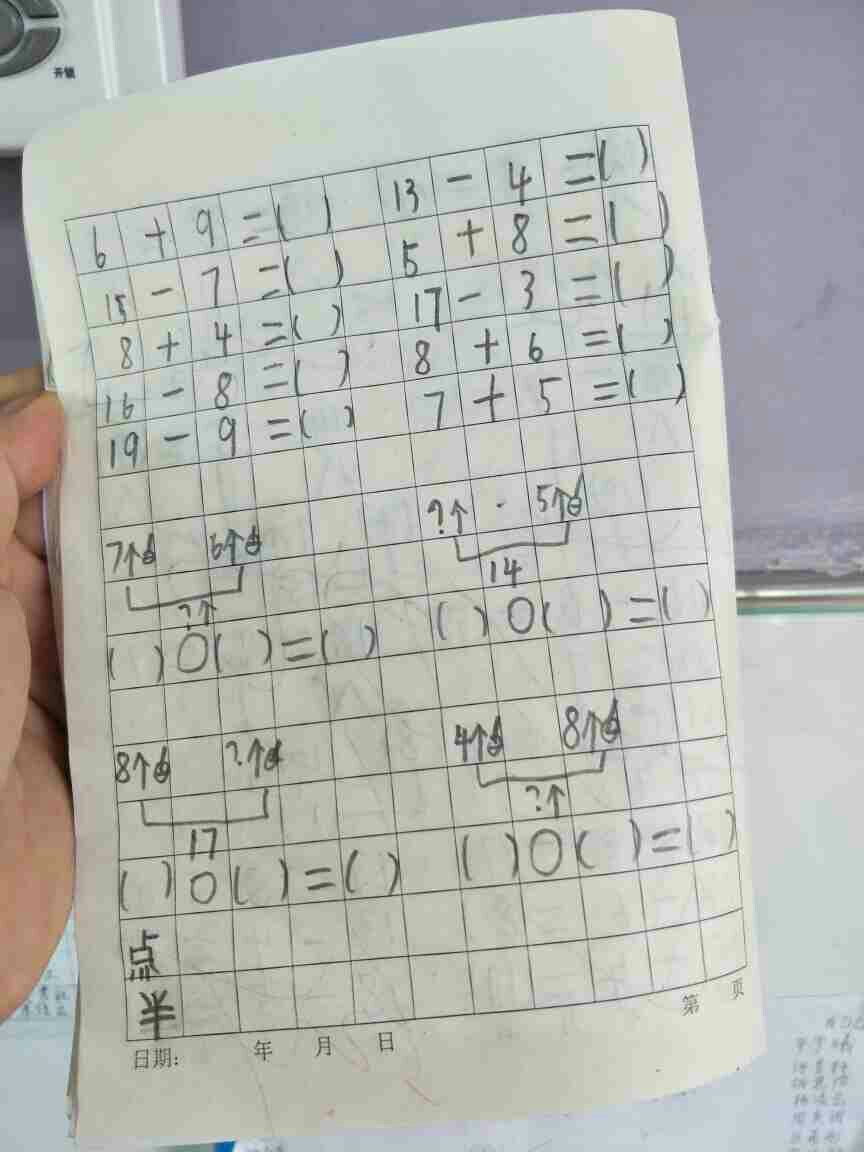 开锁
6 + 9 =( ) 13 - 4 =( )
15 - 7 =( ) 5 + 8 =( )
8 + 4 =( ) 17 - 3 =( )
16 - 8 =( ) 8 + 6 =( )
19 - 9 =( ) 7 + 5 =( )
7个 6个 ?个 5个
?个 14
( )○( )=( ) ( )○( )=( )
8个 ?个 4个 8个
17 ?个
( )○( )=( ) ( )○( )=( )
点
半
日期: 年 月 日 第 页